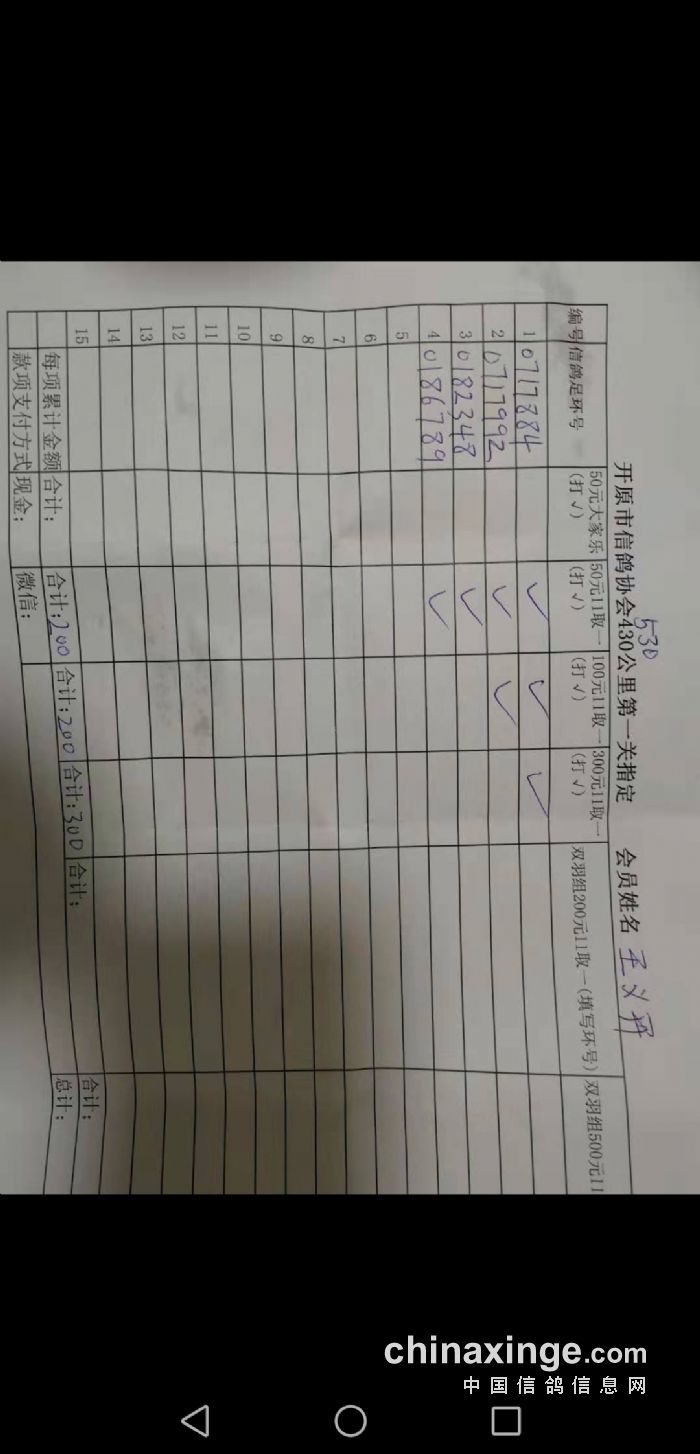 开原市信鸽协会430公里第一关指定 会员姓名 王义
530
编号 信鸽足环号 50元大家乐(打√) 50元11取一(打√) 100元11取一(打√) 300元11取一(打√) 双羽组200元11取一(填写环号) 双羽组500元11
1 0717884 √ √ √
2 0717992 √ √
3 0182348 √
4 0186789 √
5
6
7
8
9
10
11
12
13
14
15
每项累计金额 合计: 合计:200 合计:200 合计:300 合计: 合计:
款项支付方式 现金: 微信: 总计:
chinaxinge.com
中国信鸽信息网